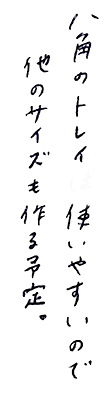 八角のトレイ 使いやすいので
他のサイズも作る予定。